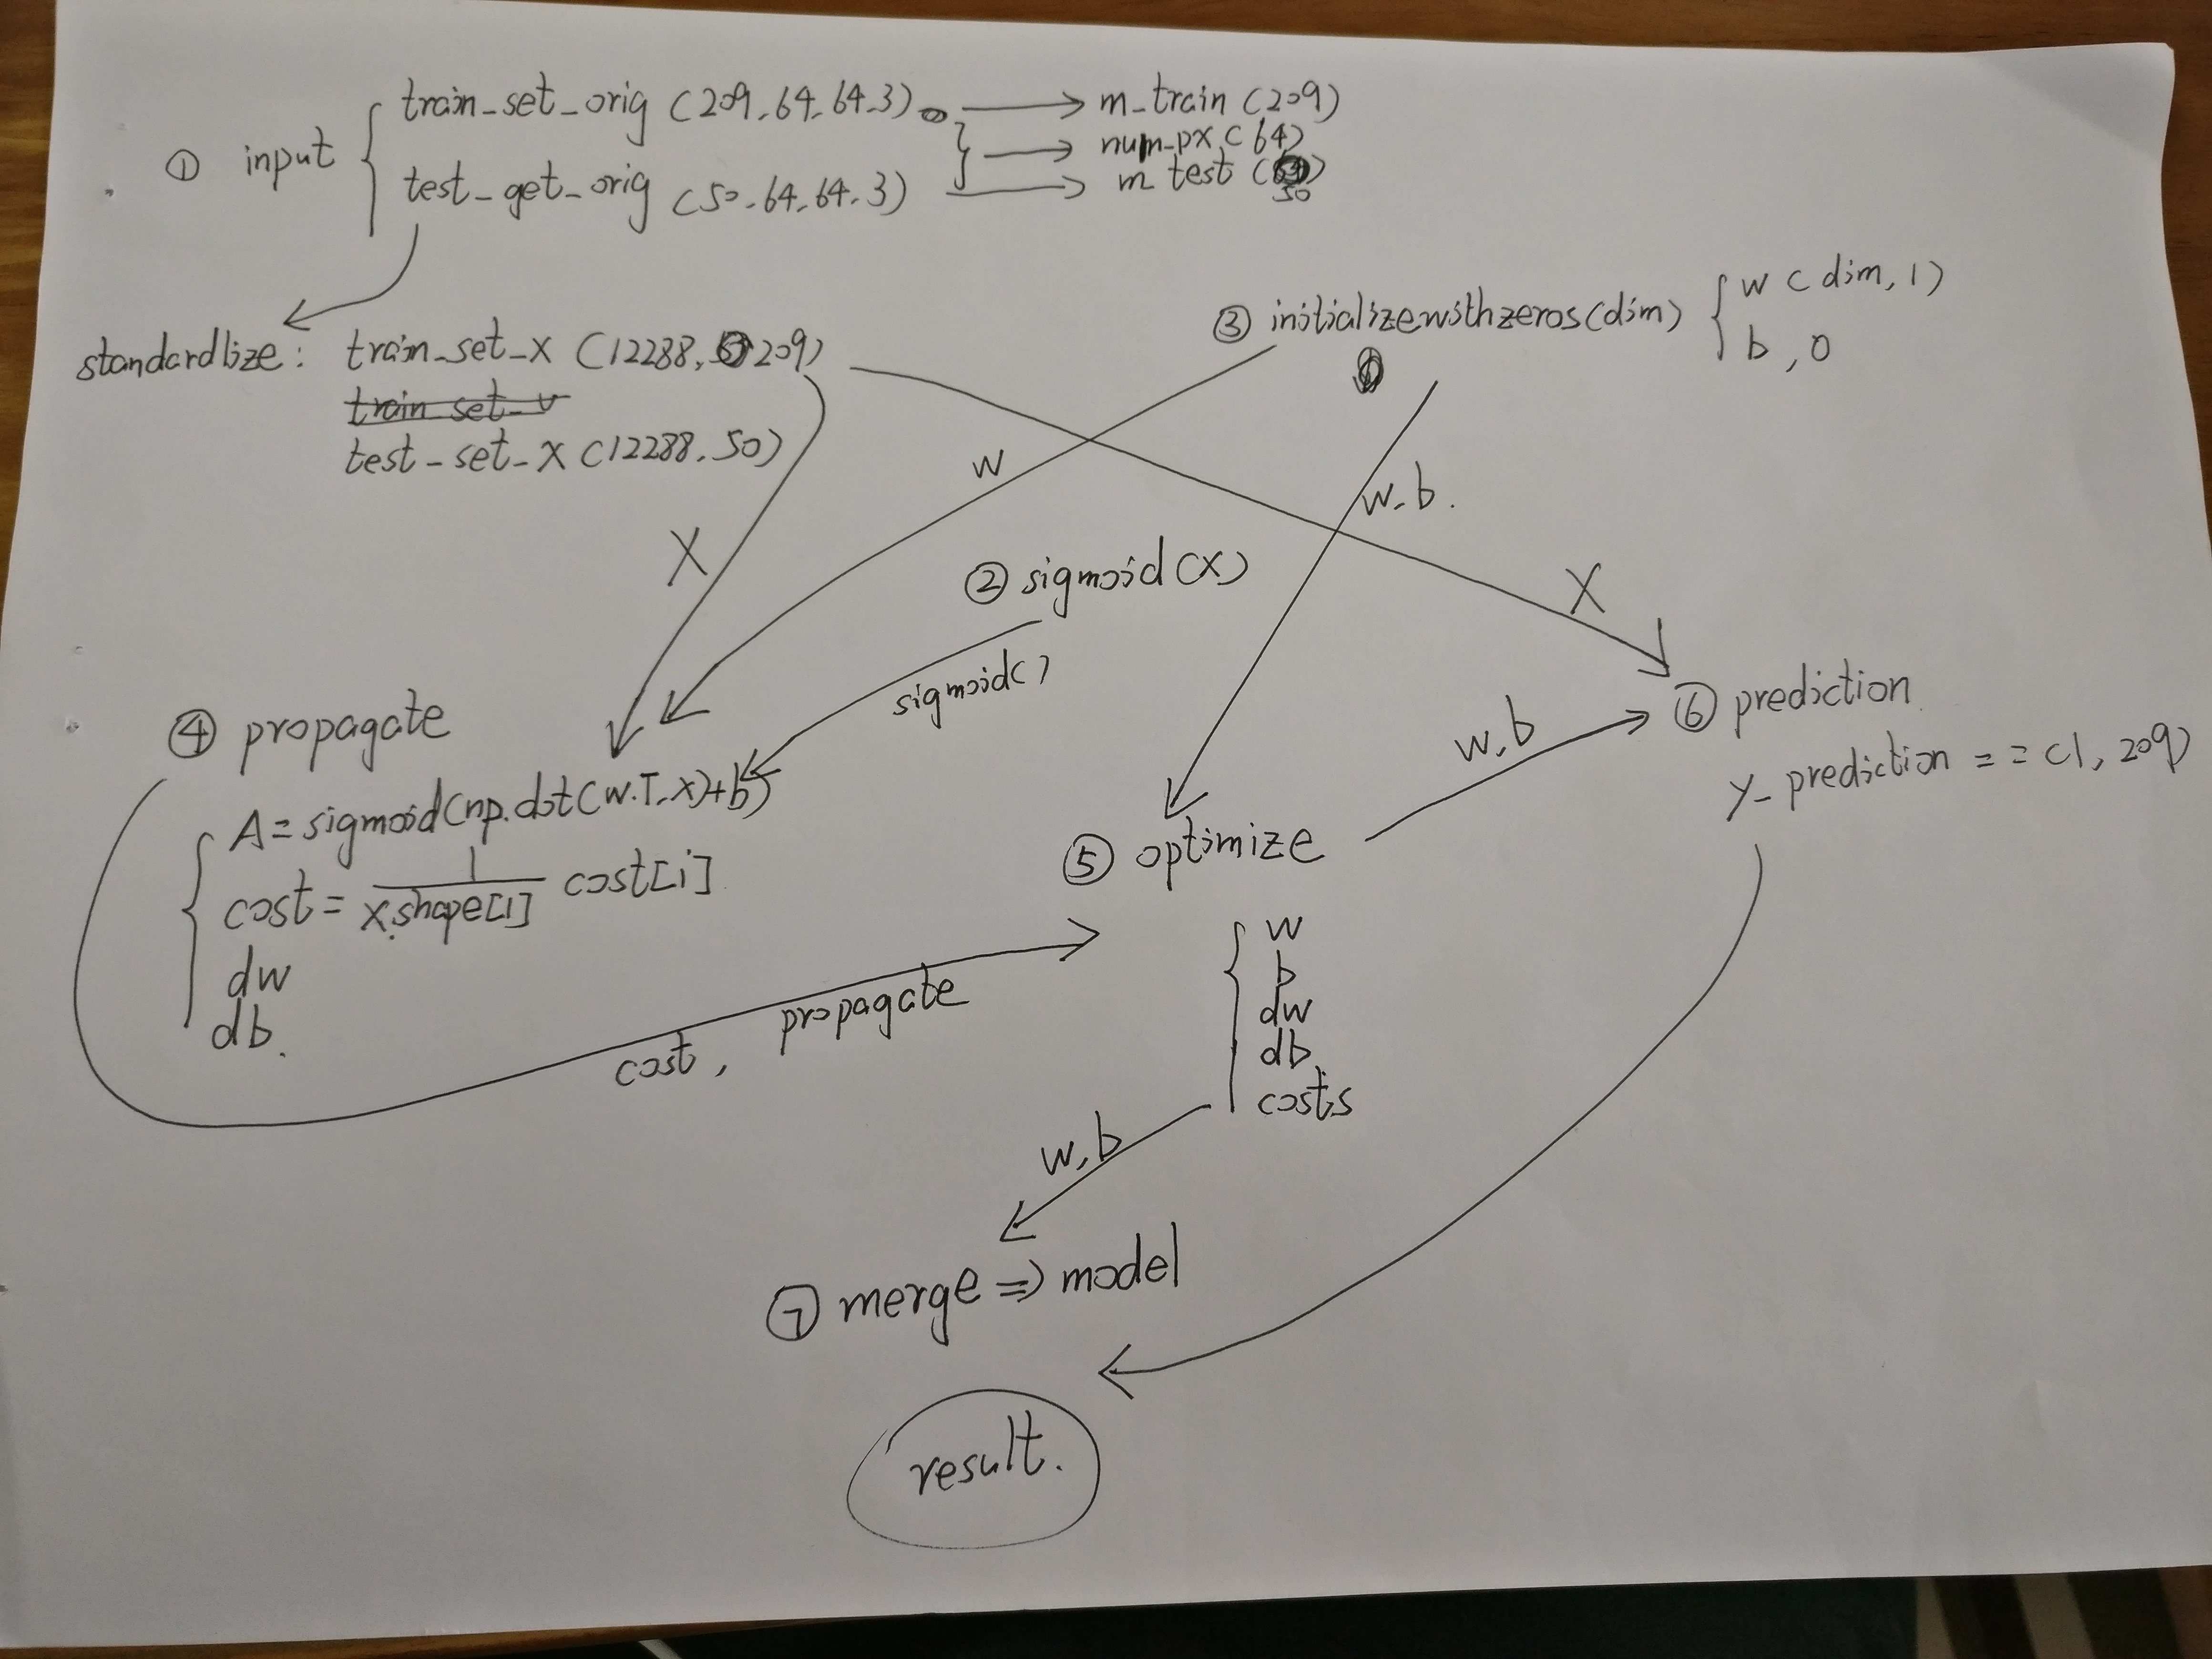 ① input
train_set_orig (209, 64, 64, 3) → m_train (209)
num_px (64)
test_get_orig (50, 64, 64, 3) → m test (50)
standardlize: train_set_x (12288, 209)
train_set_v
test_set_x (12288, 50)
③ initializewithzeros(dim)
w (dim, 1)
b, 0
w
w, b.
X
② sigmoid(x)
X
sigmoid()
④ propagate
A = sigmoid(np.dot(w.T, x)+b)
cost = 1/x.shape[1] cost[i]
dw
db.
cost, propagate
⑤ optimize
w
b
dw
db
costs
w, b
⑥ prediction
y_prediction == (1, 209)
w, b
⑦ merge => model
result.